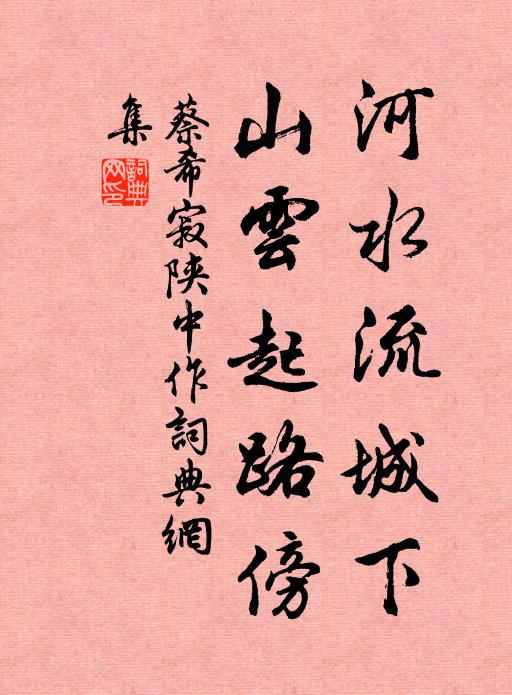 河水流城下
山雲起路傍
蔡希寂陝中作詞典網
集
詞典網印